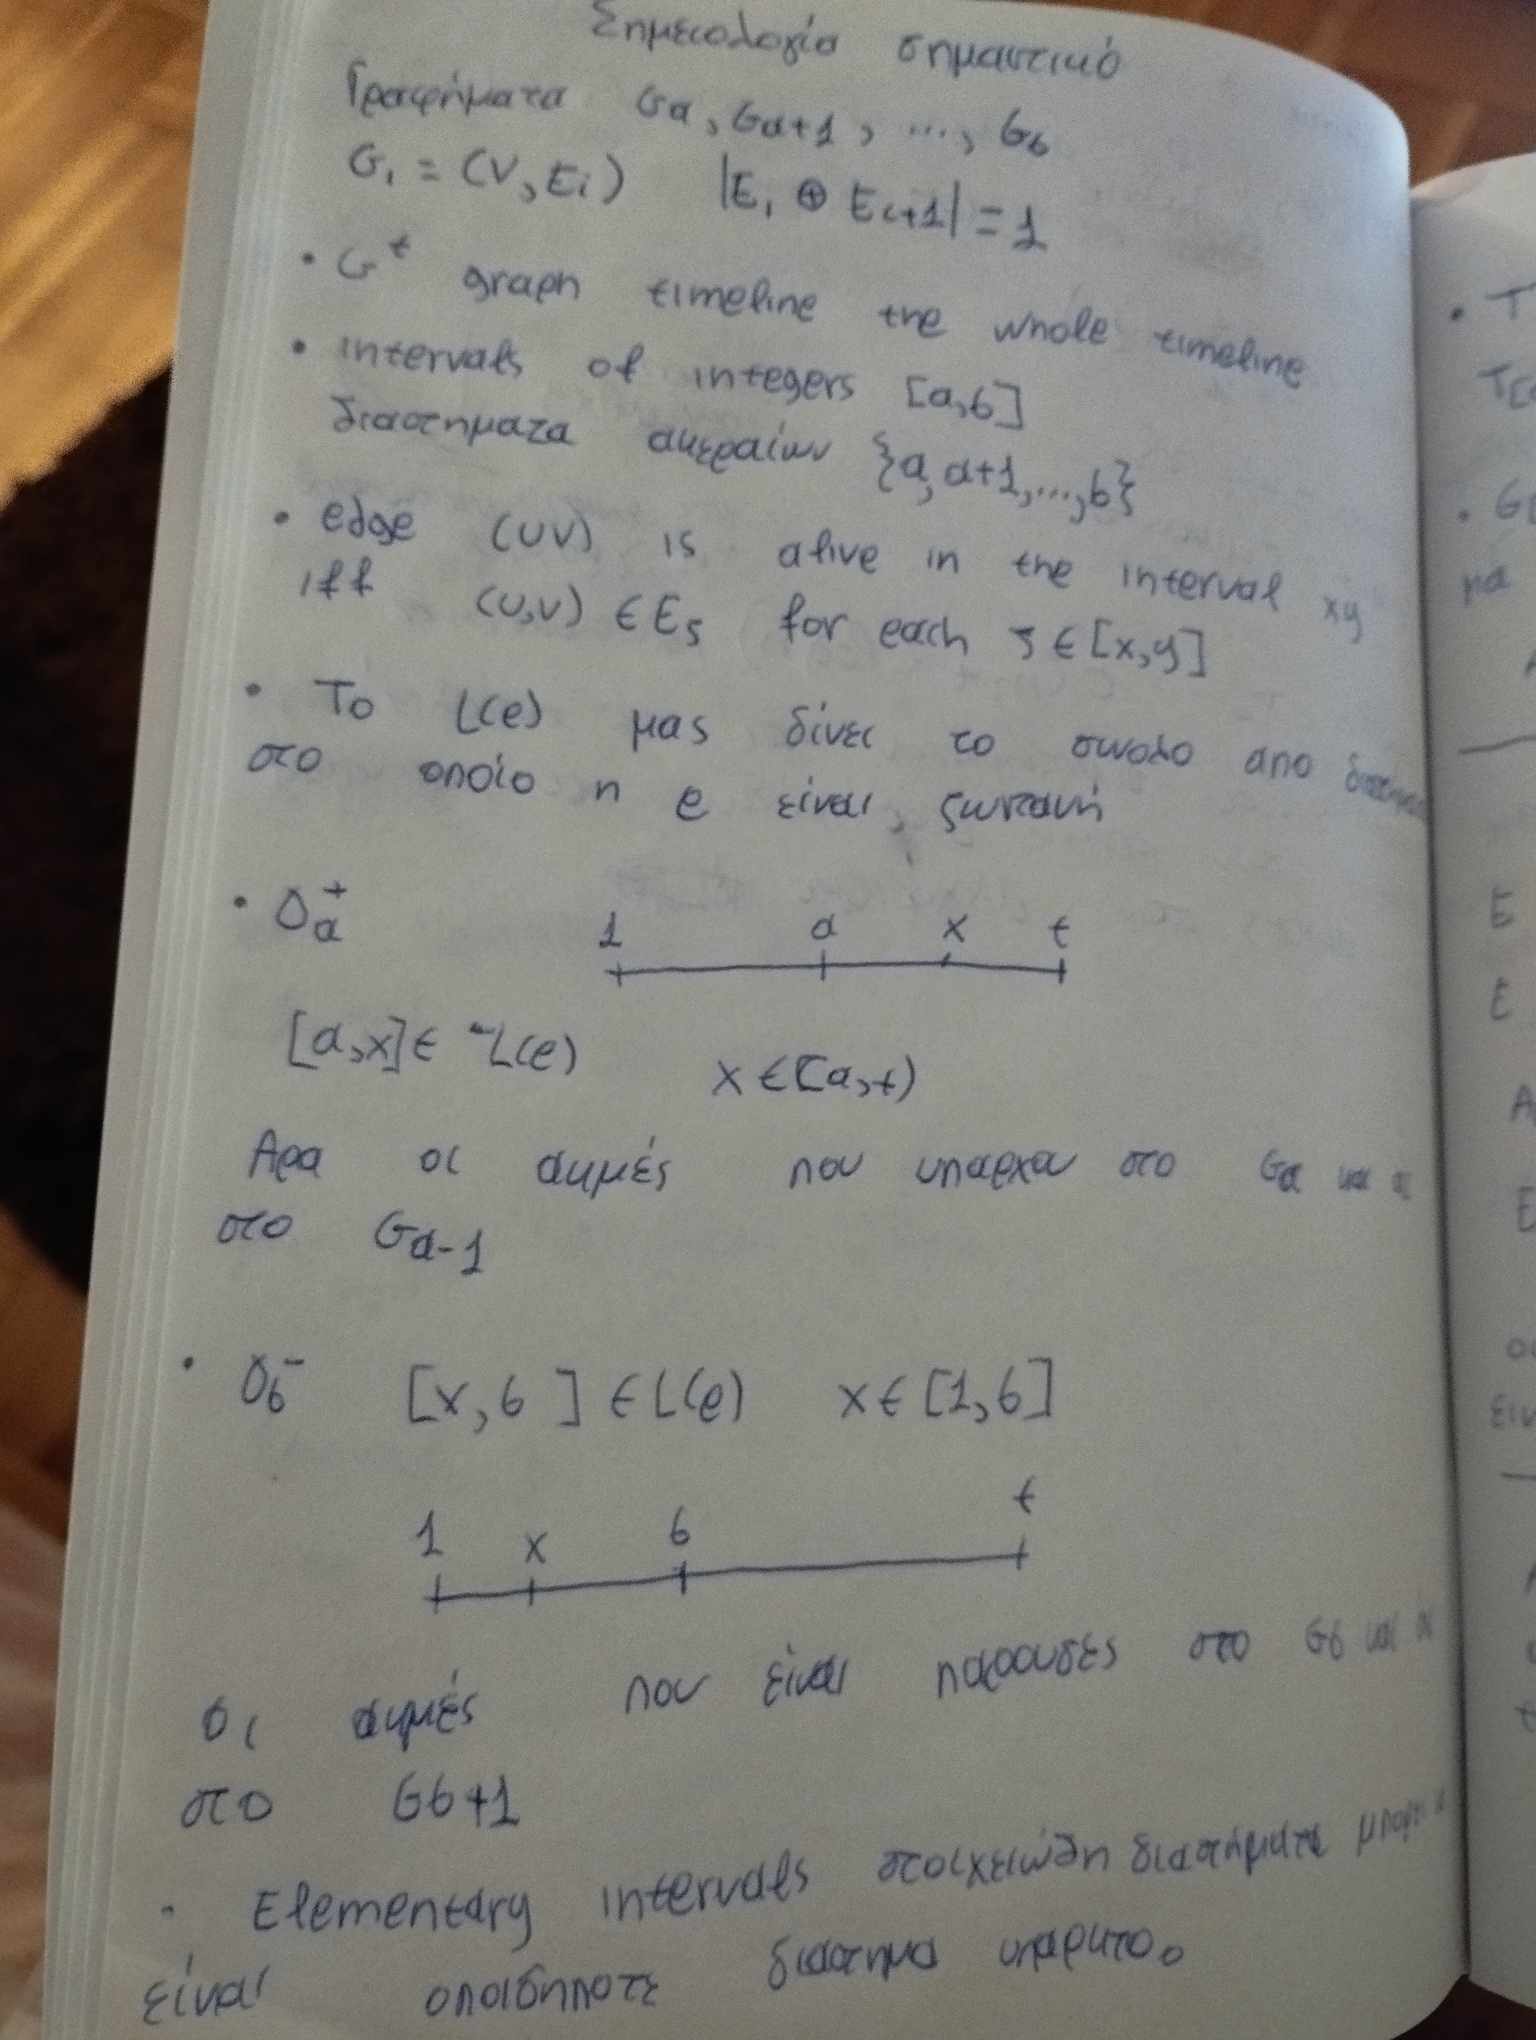 Σημειολογία σημαντικό
Γραφήματα Ga, Ga+1, ..., Gb
Gi = (V, Ei) |Ei ⊕ Ei+1| = 1
• G^t graph timeline the whole timeline
• intervals of integers [a,b]
διαστηματα ακεραίων {a, a+1, ..., b}
• edge (uv) is alive in the interval xy
iff (u,v) ∈ Eς for each ς ∈ [x,y]
• Το L(e) μας δίνει το συνολο απο
στο οποίο η e είναι ζωντανή
• Oa+
1 a x t
[a,x] ∈ L(e) x ∈ [a,t)
Αρα οι ακμές που υπαρχου στο Ga και
στο Ga-1
• Ob- [x,b] ∈ L(e) x ∈ [1,b]
1 x b t
Οι ακμές που είναι παρουδες στο Gb και
στο Gb+1
• Elementary intervals στοιχειώδη διαστήματα
είναι οποιδηποτε διαστημα υπαρκτο.
• T
E
E